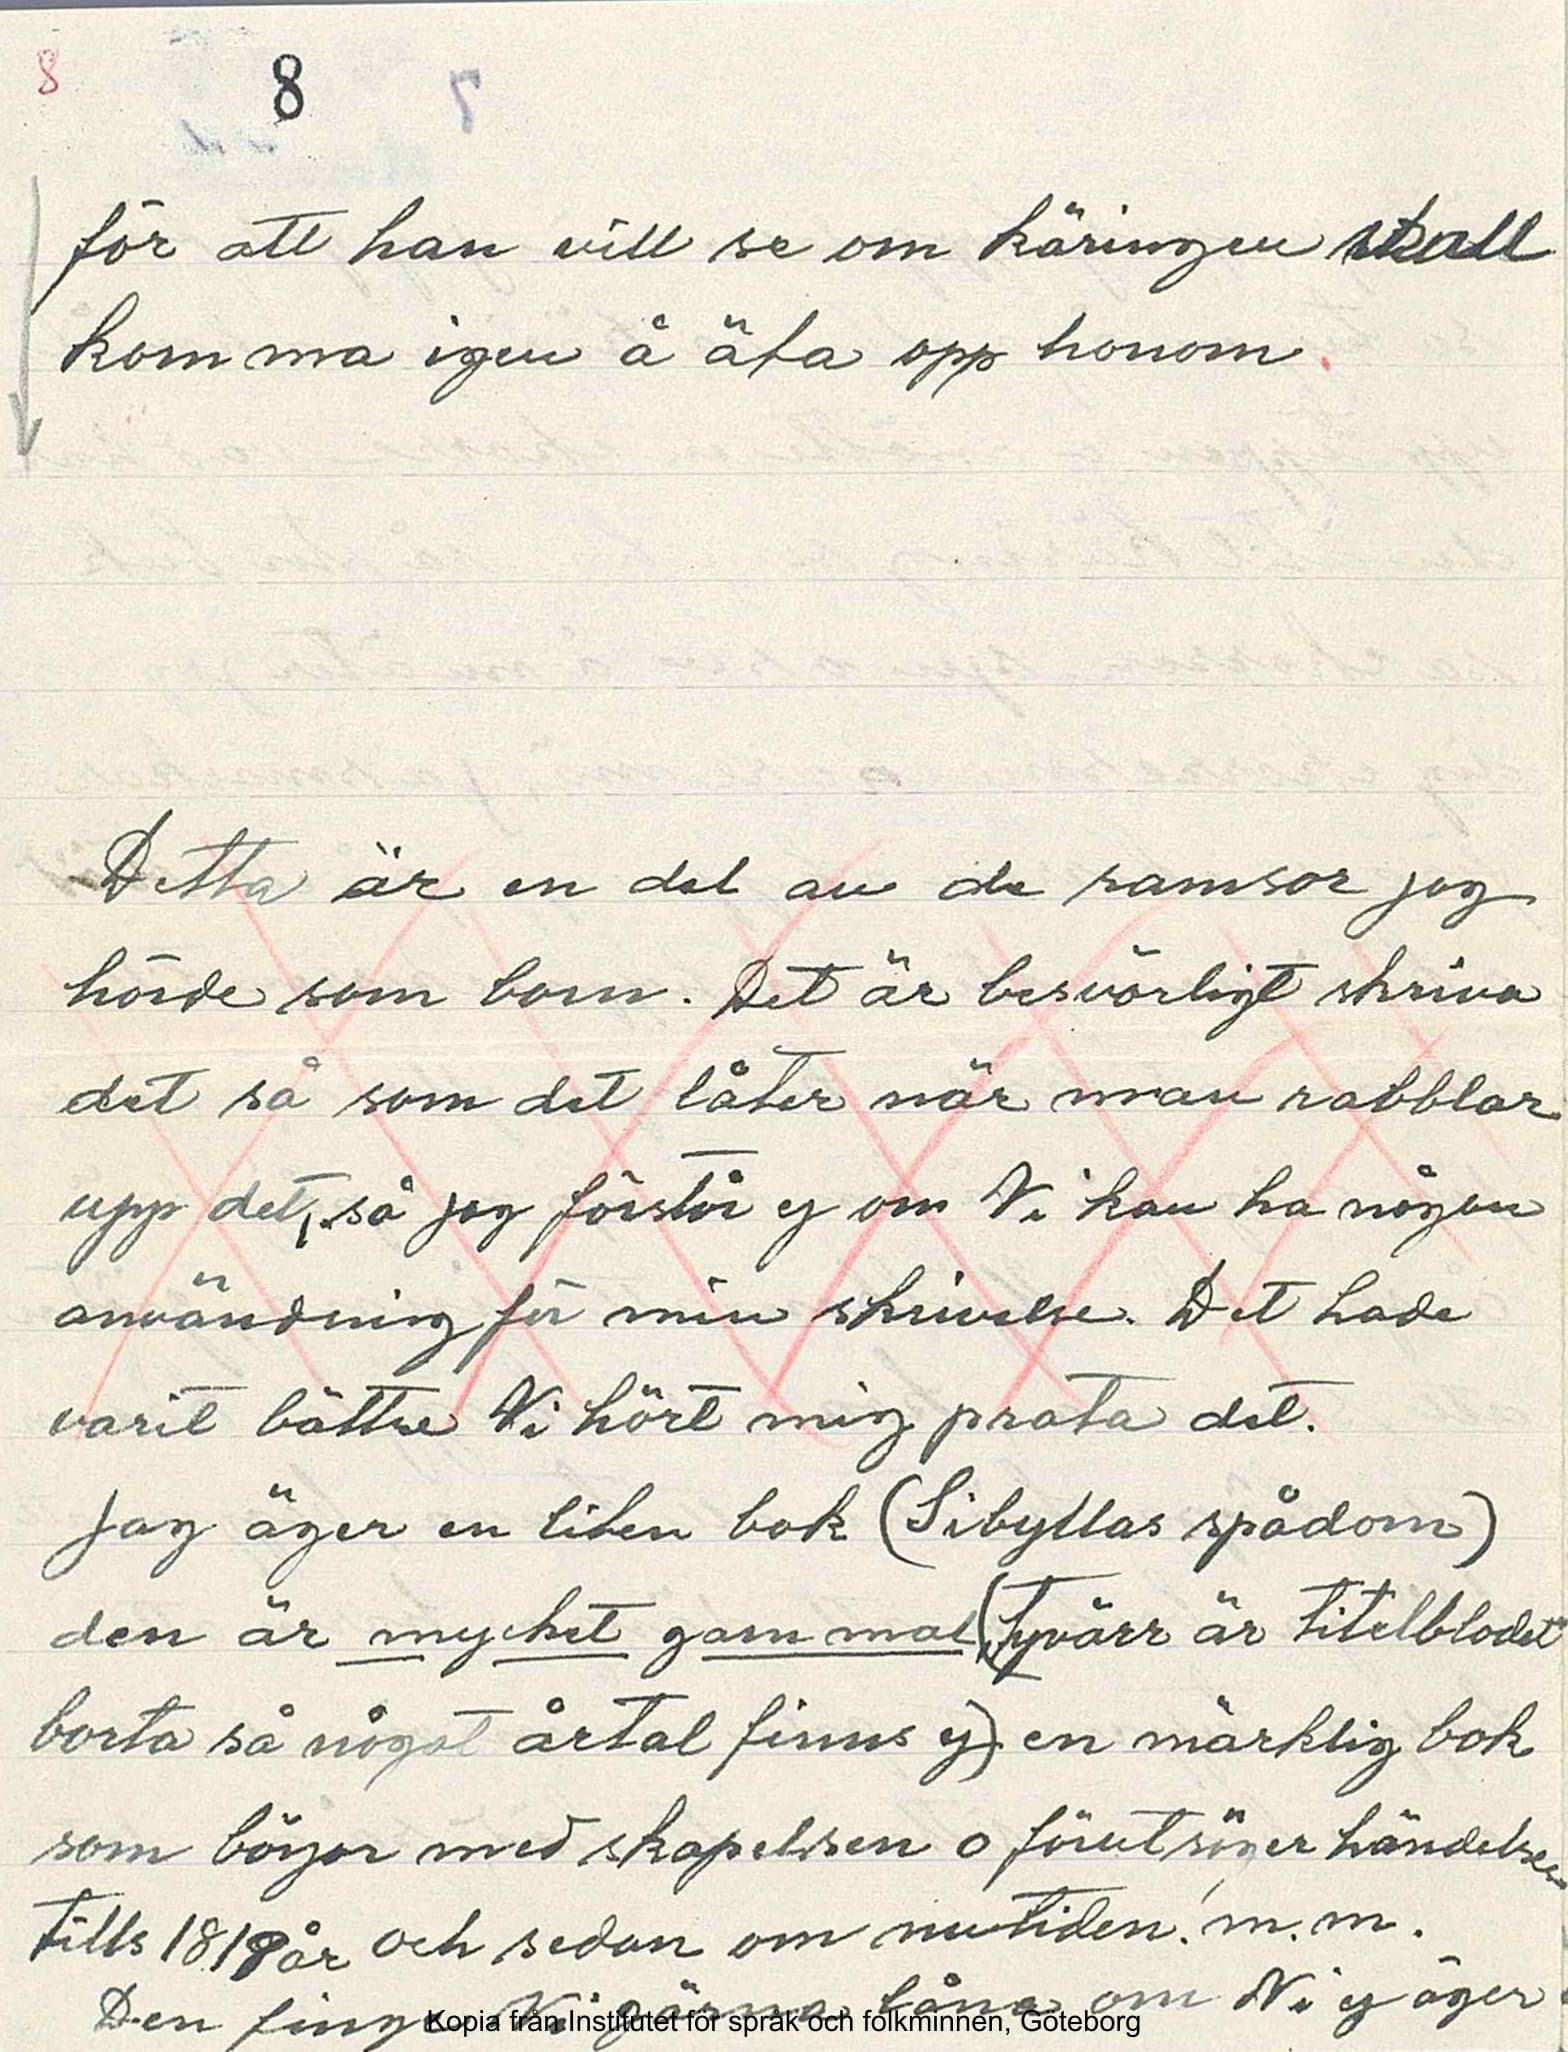 8 8 7
för att han vill se om käringen skall
komma igen å äta opp honom.
Detta är en del av de ramsor jag
hörde som barn. Det är besvärligt skriva
det så som det låter när man rabblar
upp det, så jag förstår ej om Ni kan ha någon
användning för min skrivelse. Det hade
varit bättre Ni hört mig prata det.
Jag äger en liten bok (Sibyllas spådom)
den är mycket gammal (tyvärr är titelbladet
borta så något årtal finns ej) en märklig bok
som börjar med skapelsen o förutsäger händelser
tills 1818 år och sedan om nutiden. m. m.
Den finge Ni gärna låna om Ni ej äger
Kopia från Institutet för språk och folkminnen, Göteborg